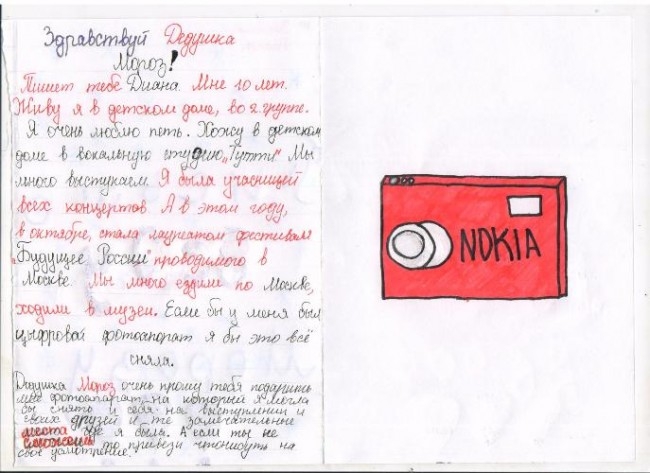 Здравствуй Дедушка
Мороз!
Пишет тебе Диана. Мне 10 лет.
Живу я в детском доме, во 2 группе.
Я очень люблю петь. Хожу в детском
доме в вокальную студию „Тутти“ Мы
много выступаем. Я была участницей
всех концертов. А в этом году,
в октябре, стала лауреатом фестиваля
„Будущее России“ проводимого в
Москве. Мы много ездили по Москве,
ходили в музеи. Если бы у меня был
цыфровой фотоапорат я бы это всё
сняла.
Дедушка Мороз очень прошу тебя подарить
мне фотоапарат, на который я могла
бы снять и себя на выступлении и
своих друзей и те замечательные
места где я была. А если ты не
сможешь то привези чтонибудь на
своё усмотрение.
NOKIA